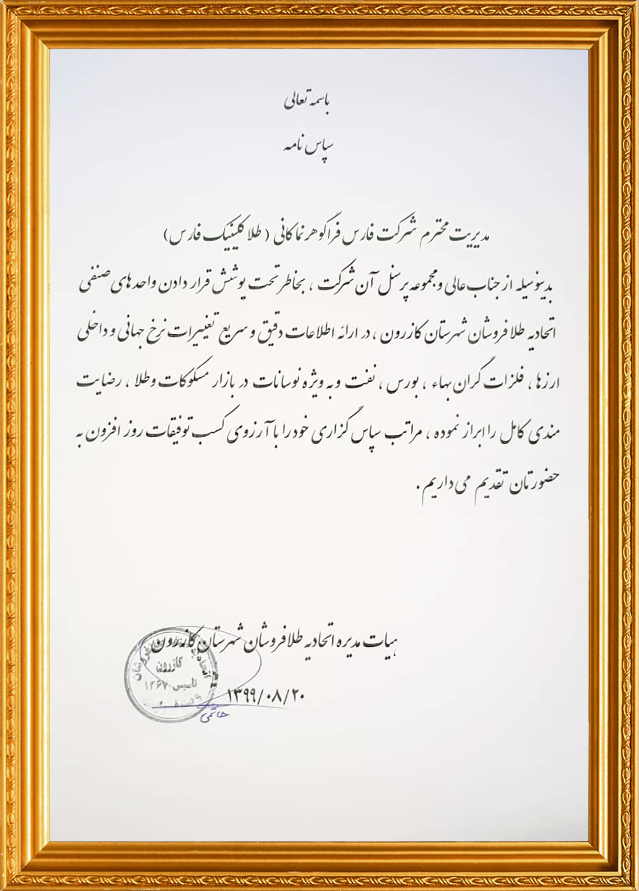 باسمه تعالی
سپاس نامه
مدیریت محترم شرکت فارس فراگوهر نماکانی ( طلا کلینیک فارس )
بدینوسیله از جناب عالی و مجموعه پرسنل آن شرکت ، بخاطر تحت پوشش قرار دادن واحد های صنفی
اتحادیه طلا فروشان شهرستان کازرون ، در ارائه اطلاعات دقیق و سریع تغییرات نرخ جهانی و داخلی
ارزها ، فلزات گران بهاء ، بورس ، نفت و به ویژه نوسانات در بازار مسکوکات وطلا ، رضایت
مندی کامل را ابراز نموده ، مراتب سپاس گزاری خود را با آرزوی کسب توفیقات روز افزون به
حضورتان تقدیم می داریم .
هیات مدیره اتحادیه طلافروشان شهرستان کازرون
کازرون
تاسیس ۱۴۶۷
۱۳۹۹/۰۸/۲۰